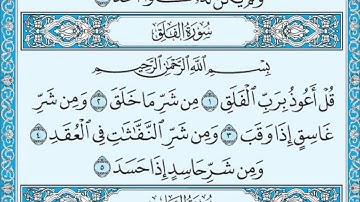 سُورَةُ الفَلَقِ
بِسْمِ اللَّهِ الرَّحْمَٰنِ الرَّحِيمِ
قُلْ أَعُوذُ بِرَبِّ الْفَلَقِ ١ مِن شَرِّ مَا خَلَقَ ٢ وَمِن شَرِّ
غَاسِقٍ إِذَا وَقَبَ ٣ وَمِن شَرِّ النَّفَّٰثَٰتِ فِي الْعُقَدِ ٤
وَمِن شَرِّ حَاسِدٍ إِذَا حَسَدَ ٥